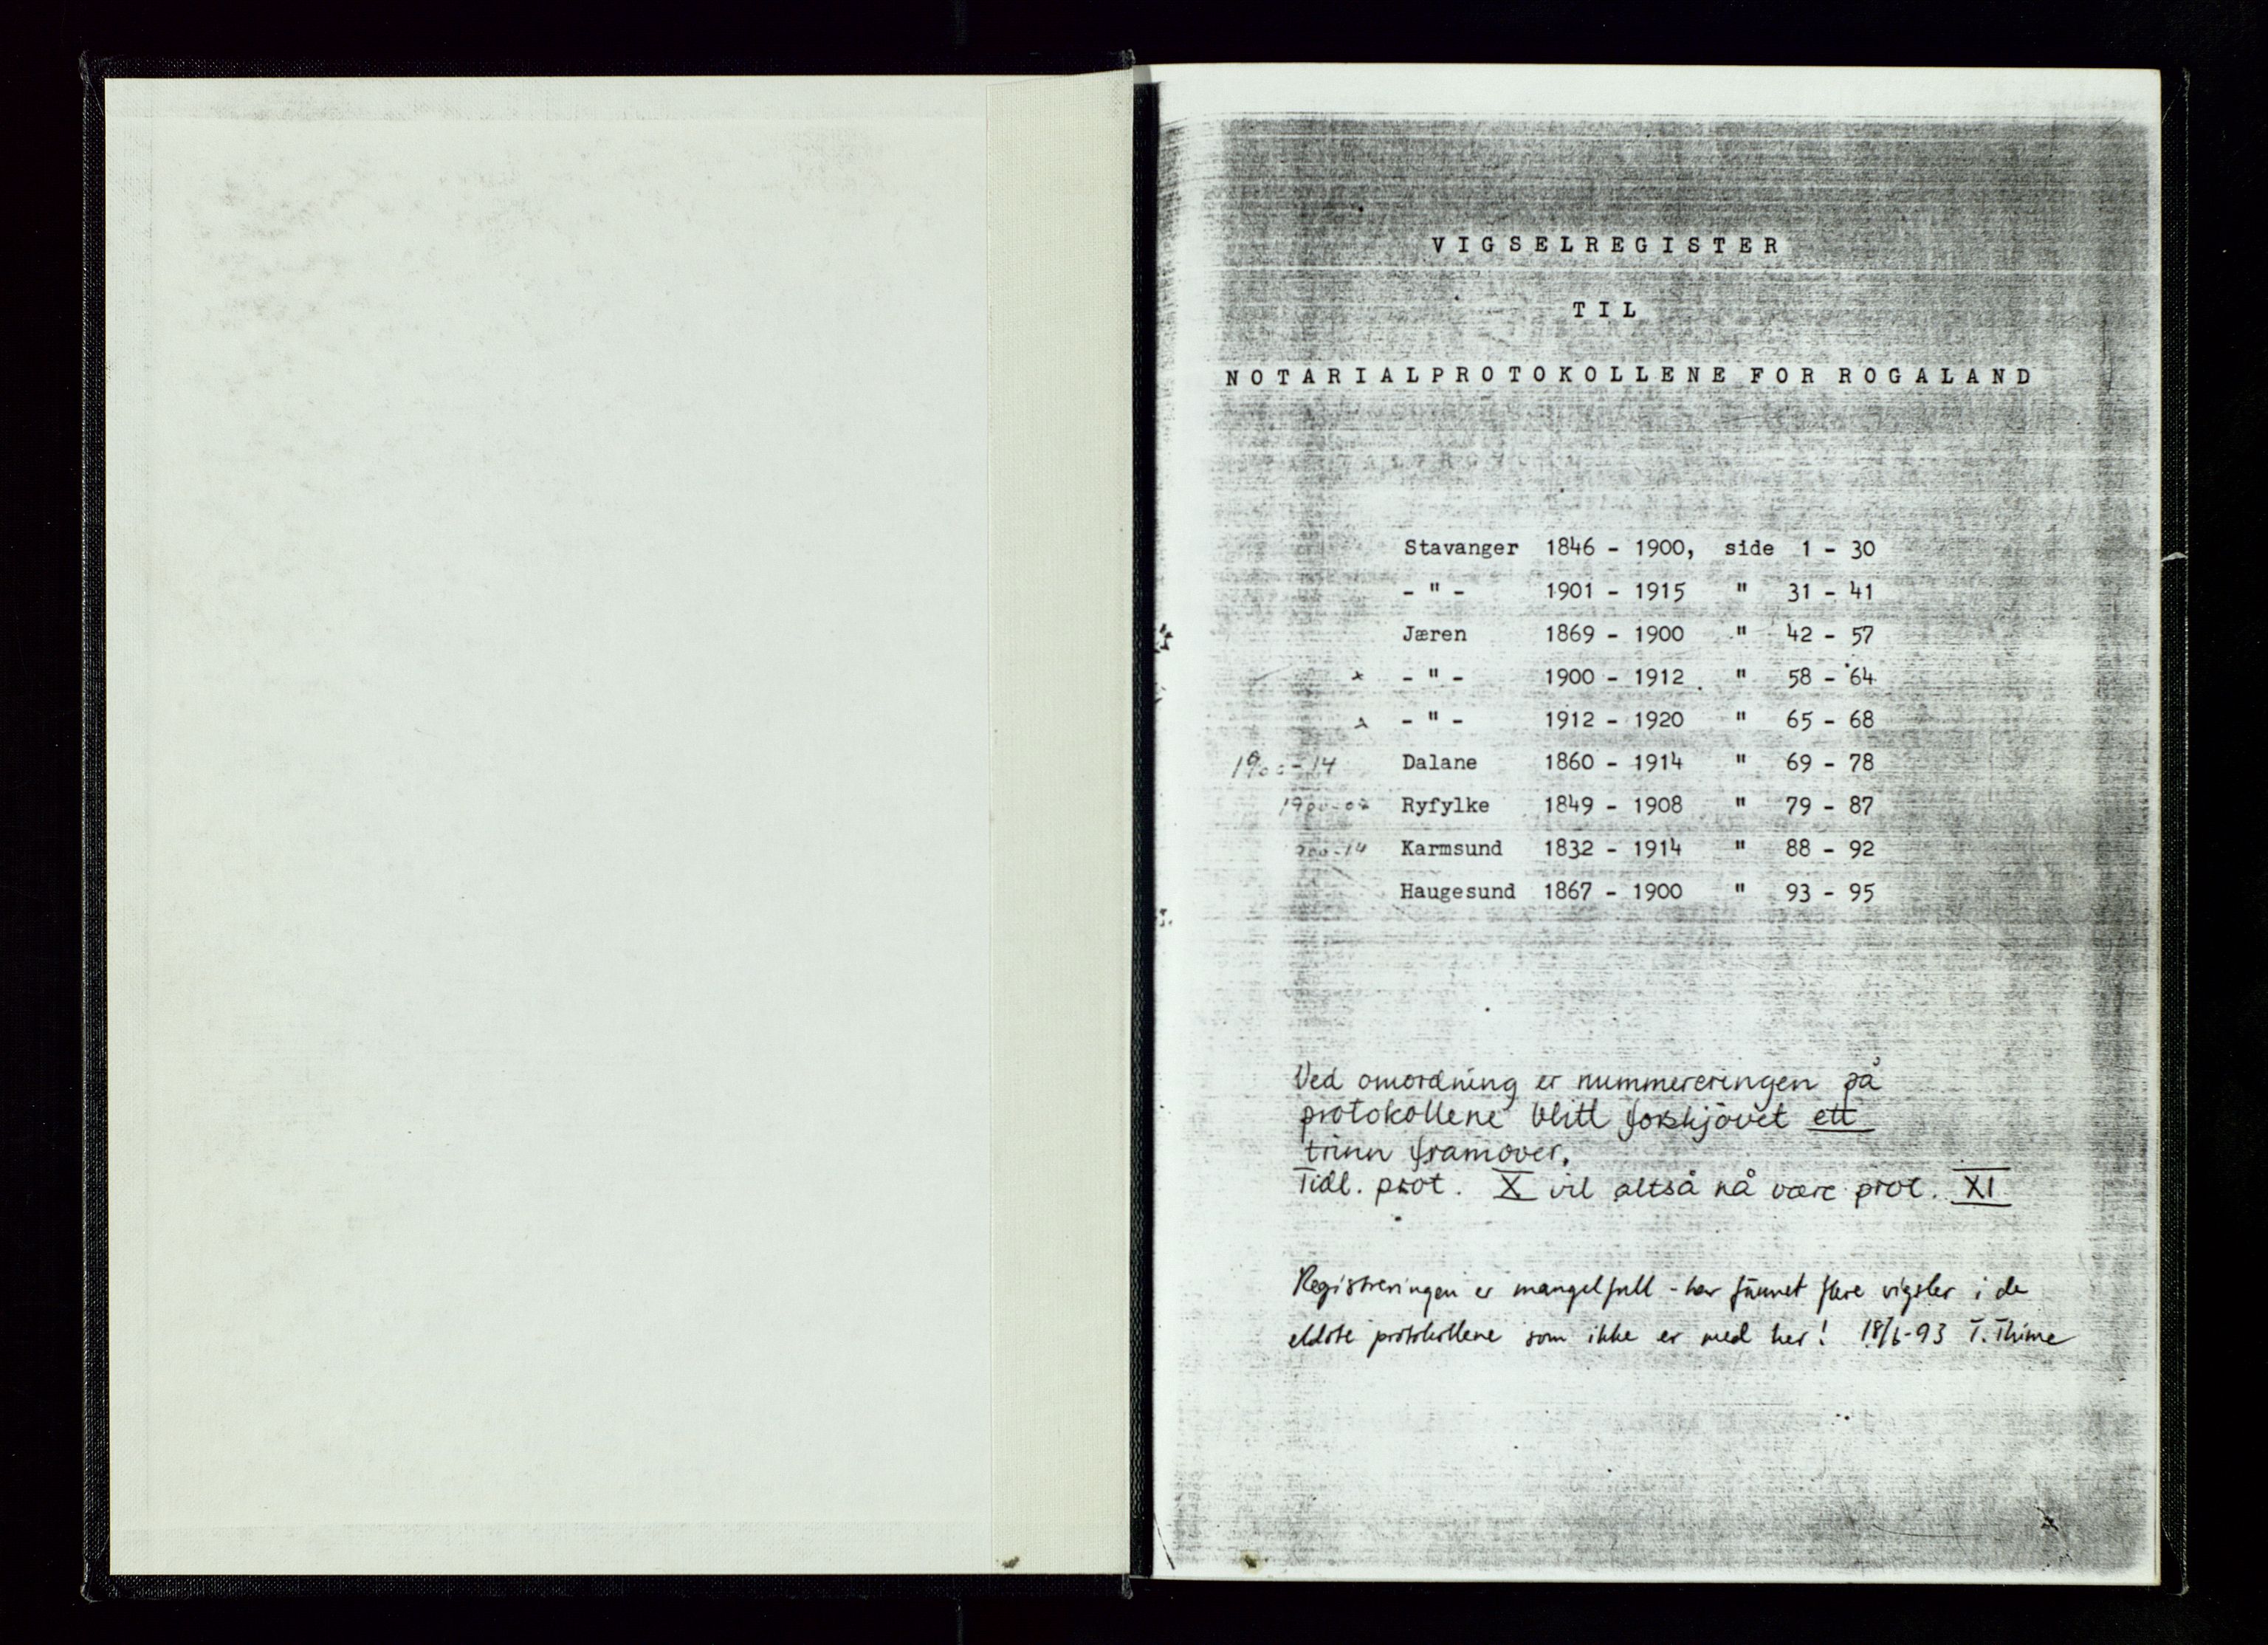 VIGSELREGISTER
TIL
NOTARIALPROTOKOLLENE FOR ROGALAND
Stavanger 1846 - 1900, side 1 - 30
- " - 1901 - 1915 " 31 - 41
Jæren 1869 - 1900 " 42 - 57
x - " - 1900 - 1912 " 58 - 64
x - " - 1912 - 1920 " 65 - 68
1900-14 Dalane 1860 - 1914 " 69 - 78
Ryfylke 1849 - 1908 " 79 - 87
Karmsund 1832 - 1914 " 88 - 92
Haugesund 1867 - 1900 " 93 - 95
Ved omordning er nummereringen på
protokollene blitt forskjövet ett
trinn framover.
Tidl. prot. X vil altså nå være prot. XI
Registreringen er mangelfull - har funnet flere vigsler i de
eldste protokollene som ikke er med her! 18/6-93 T. Thime